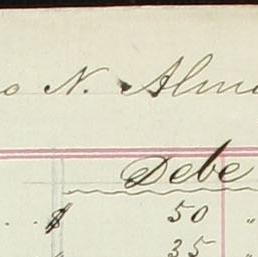 o N. Alm
Debe
$ 50 "
" 35 "